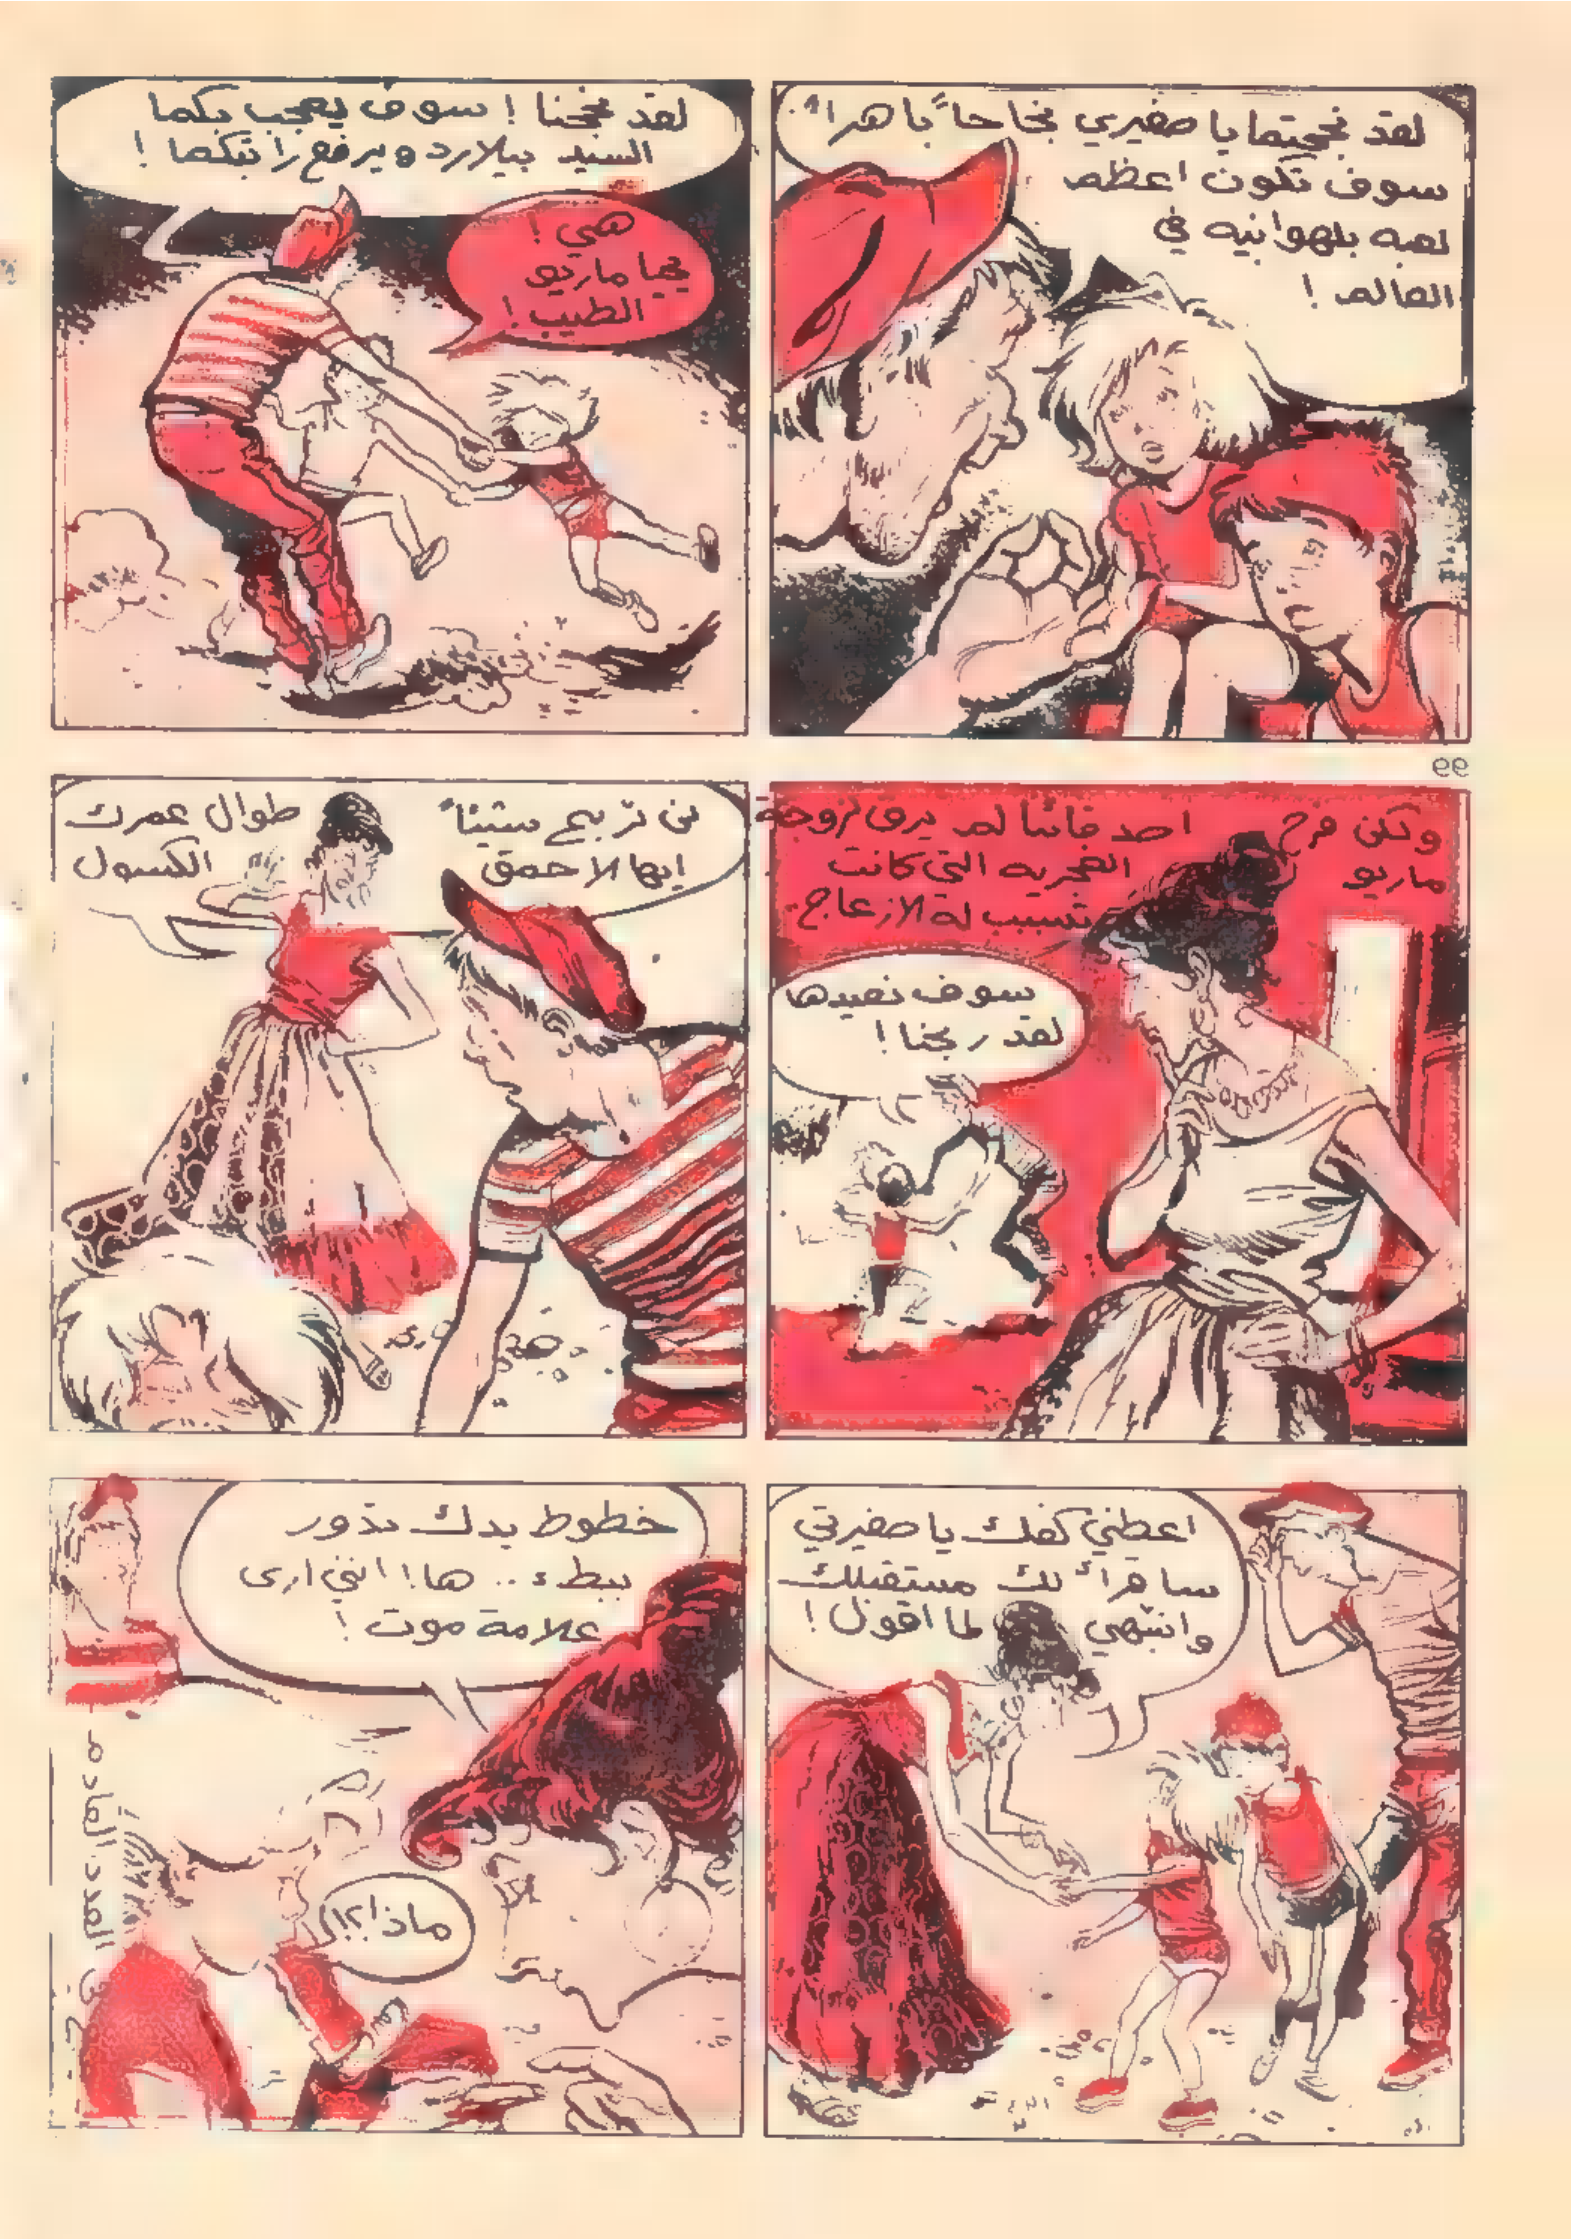 لقد نجحتما يا صغيري نجاحاً باهراً.
سوف تكون اعظم
لعبه بلهوانيه في
العالم !
لقد نجحنا ! سوف يعجب بكما
السيد بيلارد ويرفع راتبكما !
هي !
يحيا ماريو
الطيب !
99
ولكن فرح
ماريو
احد فائنا لم يرق لزوجة
الغجريه التي كانت
تسبب له الازعاج
سوف نعيدها
لقد ربحنا !
لن تربح شيئاً
ايها الاحمق
طوال عمرك
الكسول
اعطني كفك يا صغيرتي
ساقرأ لك مستقبلك
وانتبهي لما اقول !
خطوط يدك تدور
ببطء .. ها! انني ارى
علامة موت !
ماذا؟!!
العدد القادم